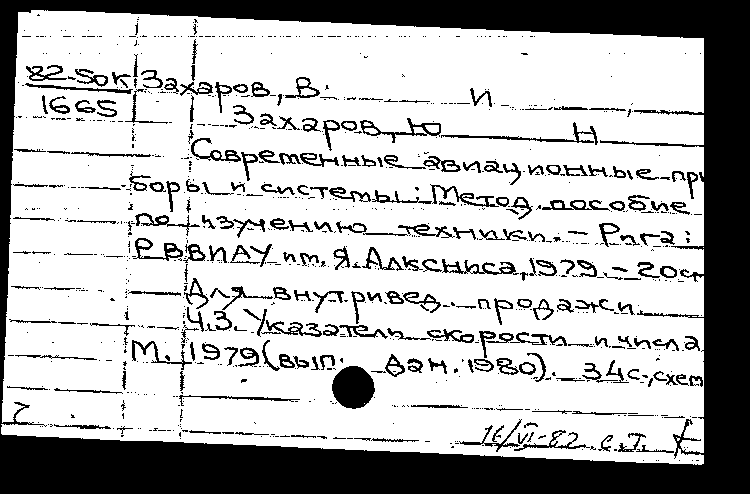 82-5ок Захаров, В. И
1665
Захаров, Ю Н
Современные авиационные при
боры и системы: Метод. пособие
по изучению техники. - Рига:
РВВИАУ им. Я. Алксниса, 1979. - 20см
Для внутривед. продажи.
Ч.3. Указатель скорости и числа
М. 1979 (вып. дан. 1980). 34с., схем
16/VI-82 с.т.